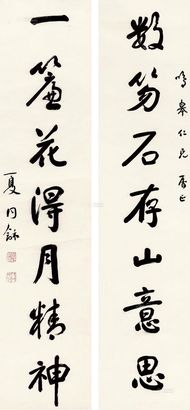 鳴皋仁兄属正
數笏石存山意思
一簾花得月精神
夏同龢